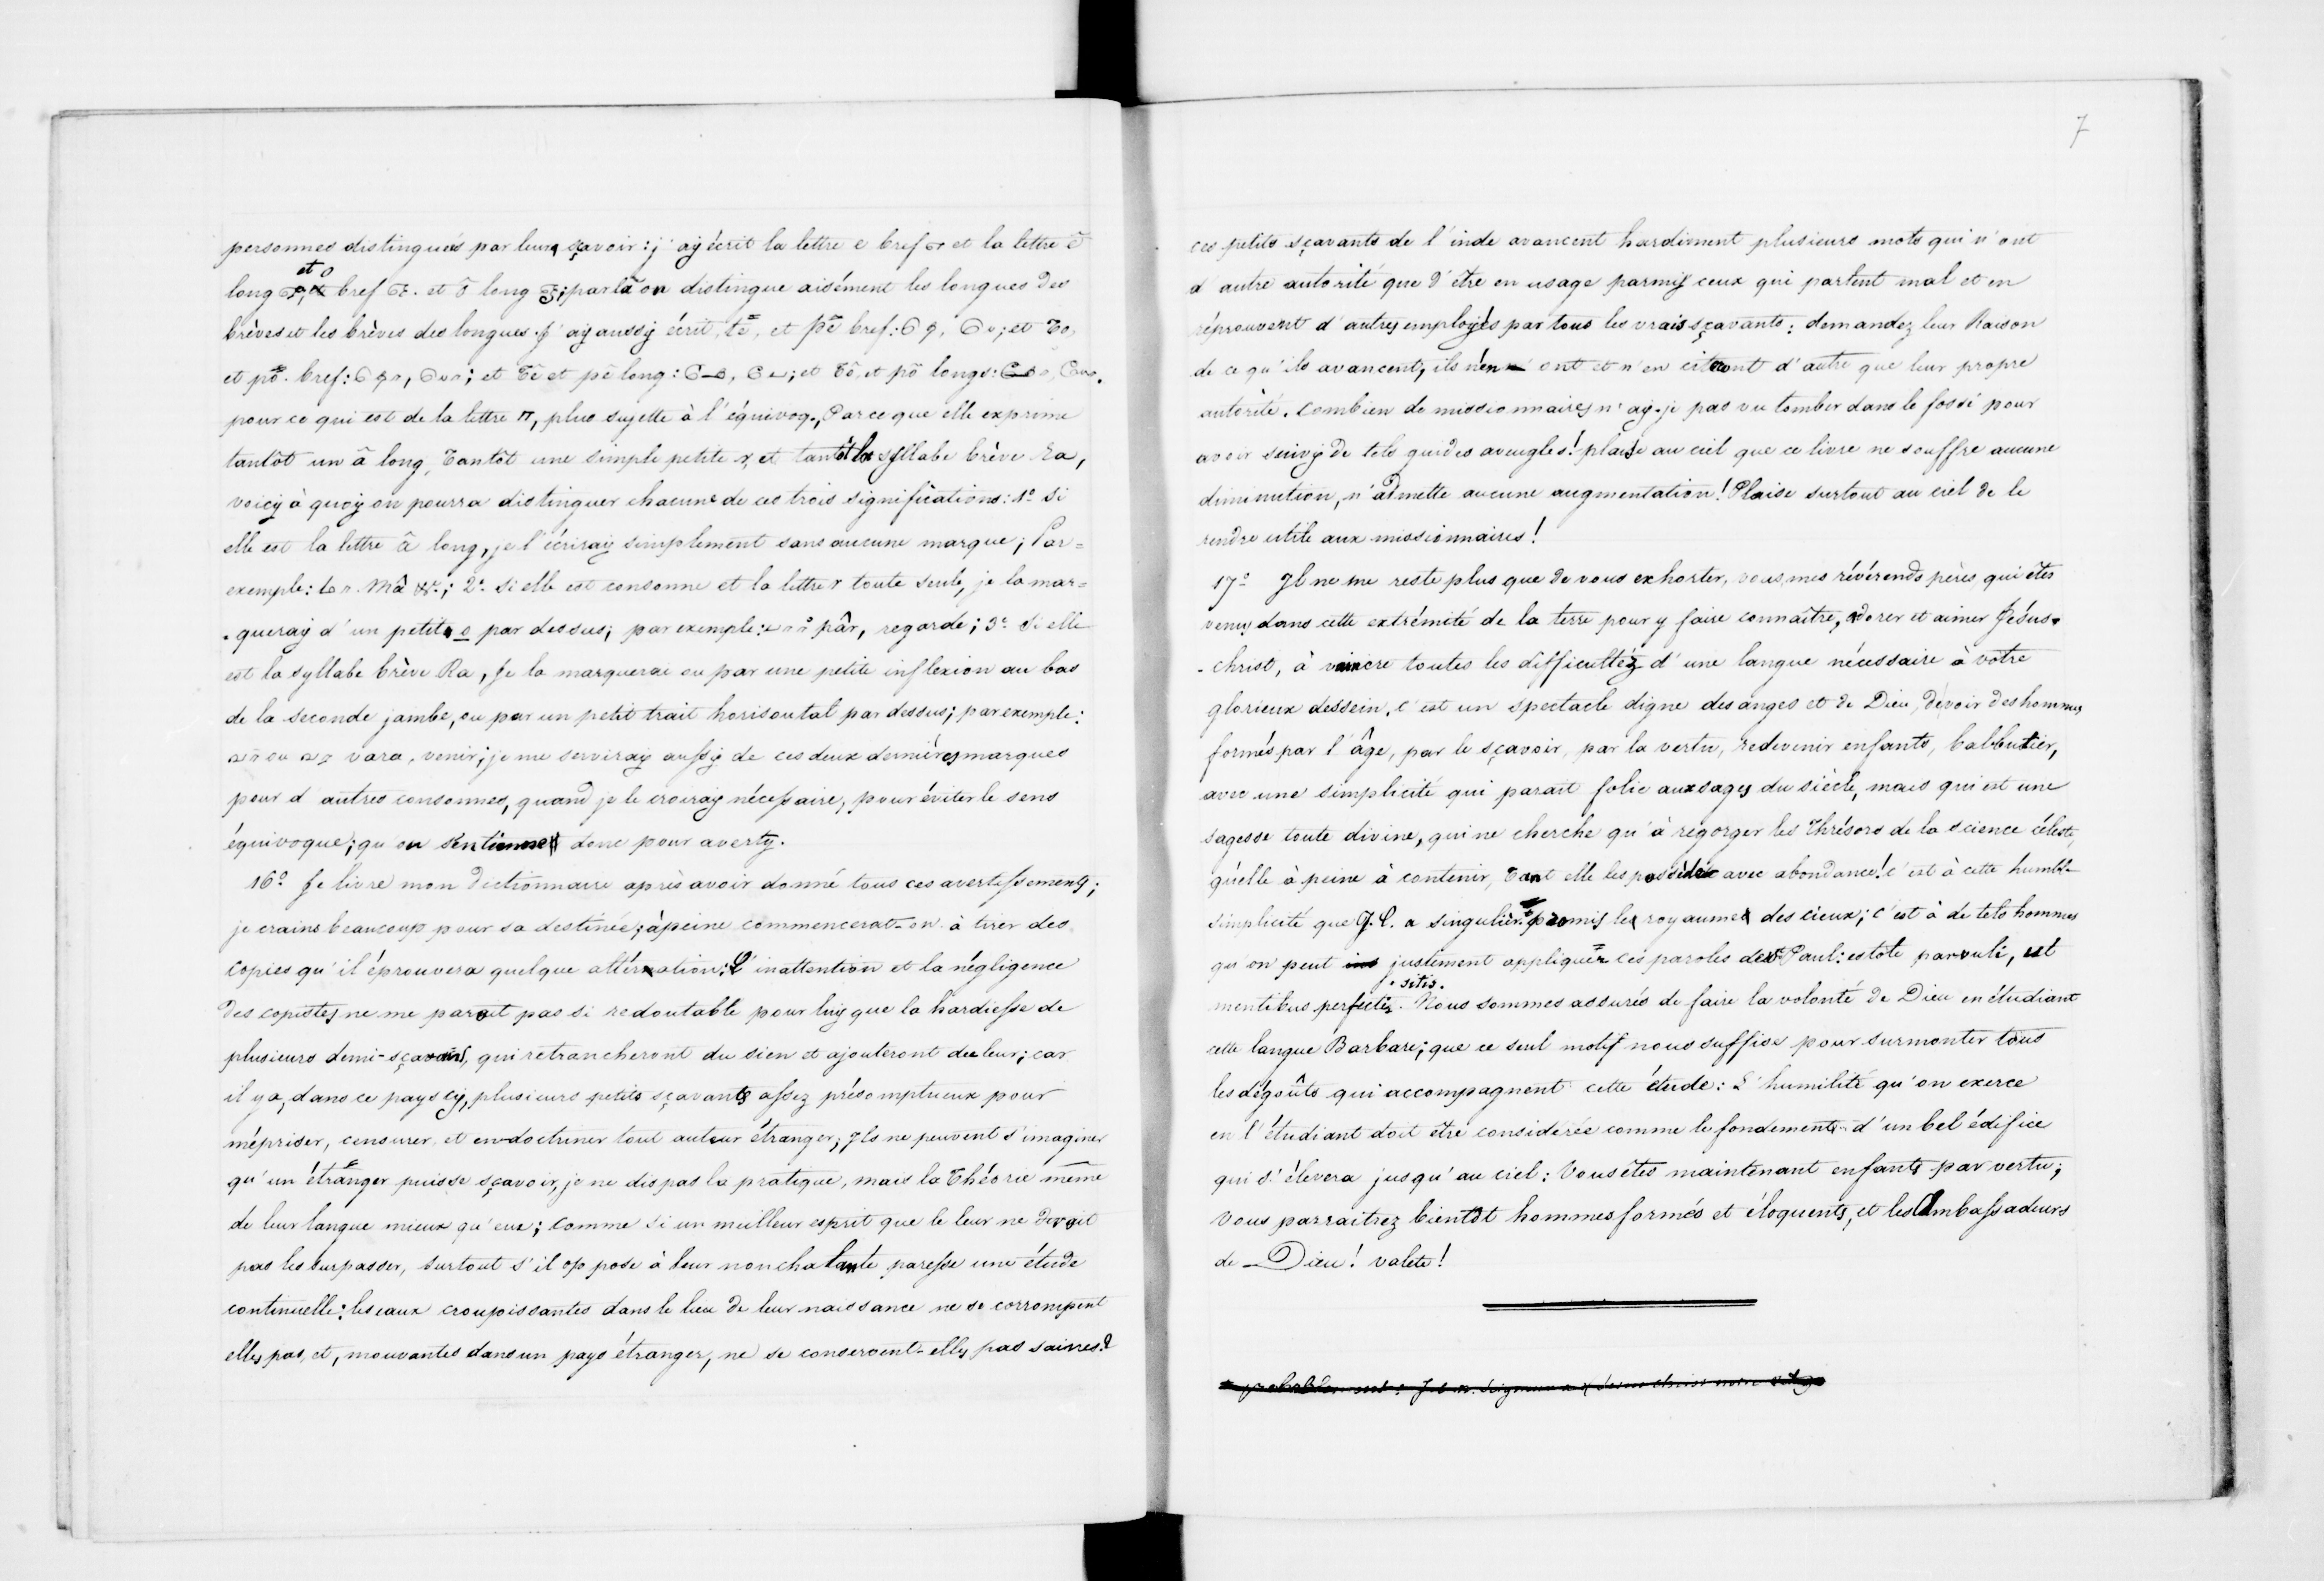 personnes distingués par leur sçavoir: j'aÿ écrit la lettre e bref எ et la lettre ē
et o
long ஏ, bref ஒ. et ō long ஓ; par là on distingue aisément les longues des
brèves et les brèves des longues. J'aÿ aussÿ écrit te, et pe bref: ; et to,
et po. bref: ; et tē et pē long: ; et tō, et pō longs:
pour ce qui est de la lettre ா, plus sujette à l'équivoq., Parce que elle exprime
tantôt un ā long, Tantôt une simple petite r, et tantôt la syllabe brève Ra,
voicÿ à quoÿ on pourra distinguer chacune de ces trois significations: 1º Si
elle est la lettre ā long, je l'écriraÿ simplement sans aucune marque; Par=
exemple: மா. Mâ &.; 2º. Si elle est consonne et la lettre r toute seule, je la mar=
-queraÿ d'un petit o par dessus; par exemple: பார் pâr, regarde; 3º. Si elle
est la syllabe brève Ra, Je la marquerai ou par une petite inflexion au bas
de la seconde jambe, ou par un petit trait horisontal par dessus; par exemple:
ou வர vara, venir; je me serviraÿ aussÿ de ces deux dernières marques
pour d'autres consonnes, quand je le croiraÿ nécessaire, pour éviter le sens
équivoque; qu'on s'en tienne donc pour avertÿ.
16º. Je livre mon dictionnaire après avoir donné tous ces avertissements;
je crains beaucoup pour sa destinée; à peine commencerat-on à tirer des
copies qu'il éprouvera quelque altération: L'inattention et la négligence
des copistes ne me parait pas si redoutable pour luÿ que la hardiesse de
plusieurs demi-sçavans, qui retrancheront du sien et ajouteront du leur; car
il y a, dans ce pays cÿ, plusieurs petits sçavants assez présomptueux pour
mépriser, censurer et en-doctriner tout auteur étranger; Ils ne peuvent s'imaginer
qu'un étranger puisse sçavoir, je ne dis pas la pratique, mais la Théorie même
de leur langue mieux qu'eux; comme si un meilleur esprit que le leur ne devait
pas les surpasser, surtout s'il oppose à leur nonchalante paresse une étude
continuelle: les eaux croupissantes dans le lieu de leur naissance ne se corrompent
elles pas, et, mouvantes dans un pays étranger, ne se conservent-elles pas saines?
7
ces petits sçavants de l'inde avancent hardiment plusieurs mots qui n'ont
d'autre autorité que d'être en usage parmÿ ceux qui parlent mal et en
réprouvent d'autres employés par tous les vrais sçavants: demandez leur Raison
de ce qu'ils avancent, ils n'en ont et n'en citeront d'autre que leur propre
autorité. Combien de missionnaires n'aÿ-je pas vu tomber dans le fossé pour
avoir suivÿ de tels guides aveugles! plaise au ciel que ce livre ne souffre aucune
diminution, n'admette aucune augmentation! Plaise surtout au ciel de le
rendre utile aux missionnaires!
17º Il ne me reste plus que de vous exhorter, vous, mes révérends pères, qui êtes
venus dans cette extrémité de la terre pour y faire connaître, adorer et aimer Jésus-
-christ, à vaincre toutes les difficultéz d'une langue nécessaire à votre
glorieux dessein. c'est un spectacle digne des anges et de Dieu, de voir des hommes
formés par l'âge, par le sçavoir, par la vertu, redevenir enfants, balbutier,
avec une simplicité qui parait folie aux sages du siècle, mais qui est une
sagesse toute divine, qui ne cherche qu'à regorger les Thrésors de la science céleste,
qu'elle à peine à contenir, Tant elle les possède avec abondance! c'est à cette humble
simplicité que J. C. a singulièr. promis le royaume des cieux; c'est à de tels hommes
qu'on peut justement appliquer ces paroles de St Paul: estote parvuli, et
sitis.
mentibus perfecti. Nous sommes assurés de faire la volonté de Dieu en étudiant
cette langue Barbare; que ce seul motif nous suffise pour surmonter tous
les dégoûts qui accompagnent cette étude: L'humilité qu'on exerce
en l'étudiant doit être considérée comme le fondement d'un bel édifice
qui s'élevera jusqu'au ciel: Vous êtes maintenant enfants par vertu;
Vous parraitrez bientôt hommes formés et éloquents, et les Ambassadeurs
de Dieu! valete!